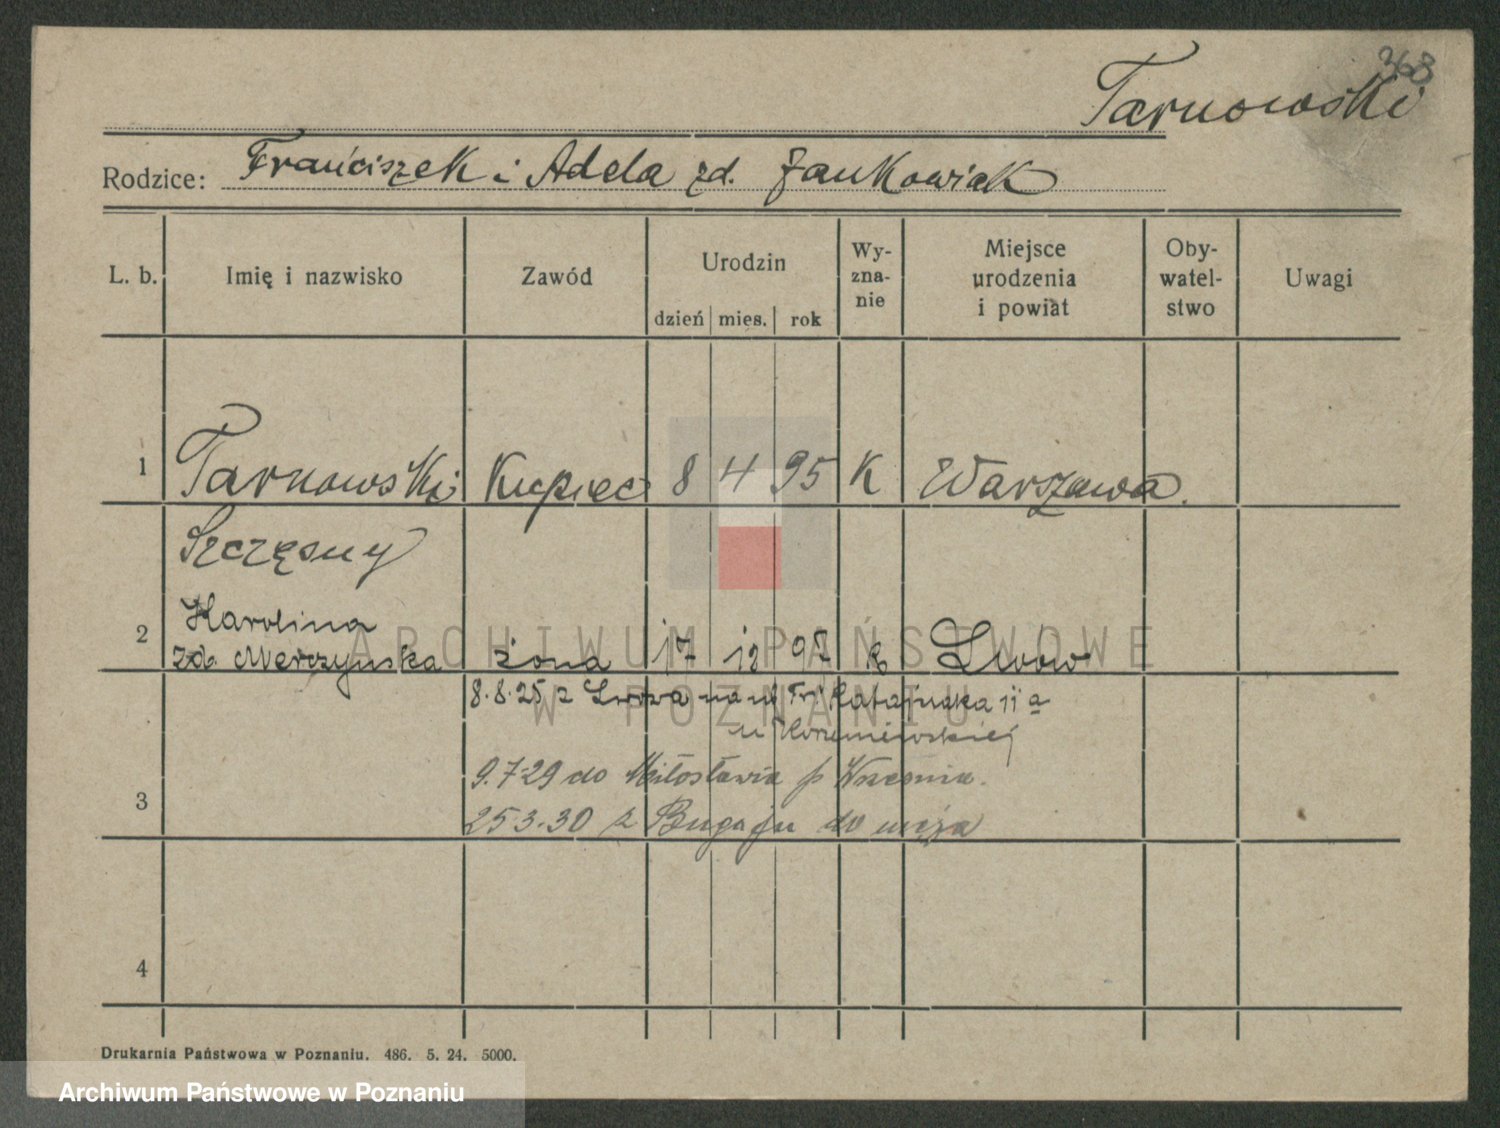 368
Tarnowski
Rodzice: Franciszek i Adela zd. Jankowiak
L. b. Imię i nazwisko Zawód Urodzin dzień mies. rok Wy-zna-nie Miejsce urodzenia i powiat Oby-watel-stwo Uwagi
1 Tarnowski Kupiec 8 4 95 K Warszawa.
Szczęsny
Karolina
2 zd. Merczyńska żona 17 12 97 k Lwów
ARCHIWUM PAŃSTWOWE
W POZNANIU
8.8.25 z Lwowa na ul Fr. Ratajczaka 11a
u
9.7.29 do Miłosławia p Września.
3 25.3.30 z Bugaju do męża
4
Drukarnia Państwowa w Poznaniu. 486. 5. 24. 5000.
Archiwum Państwowe w Poznaniu